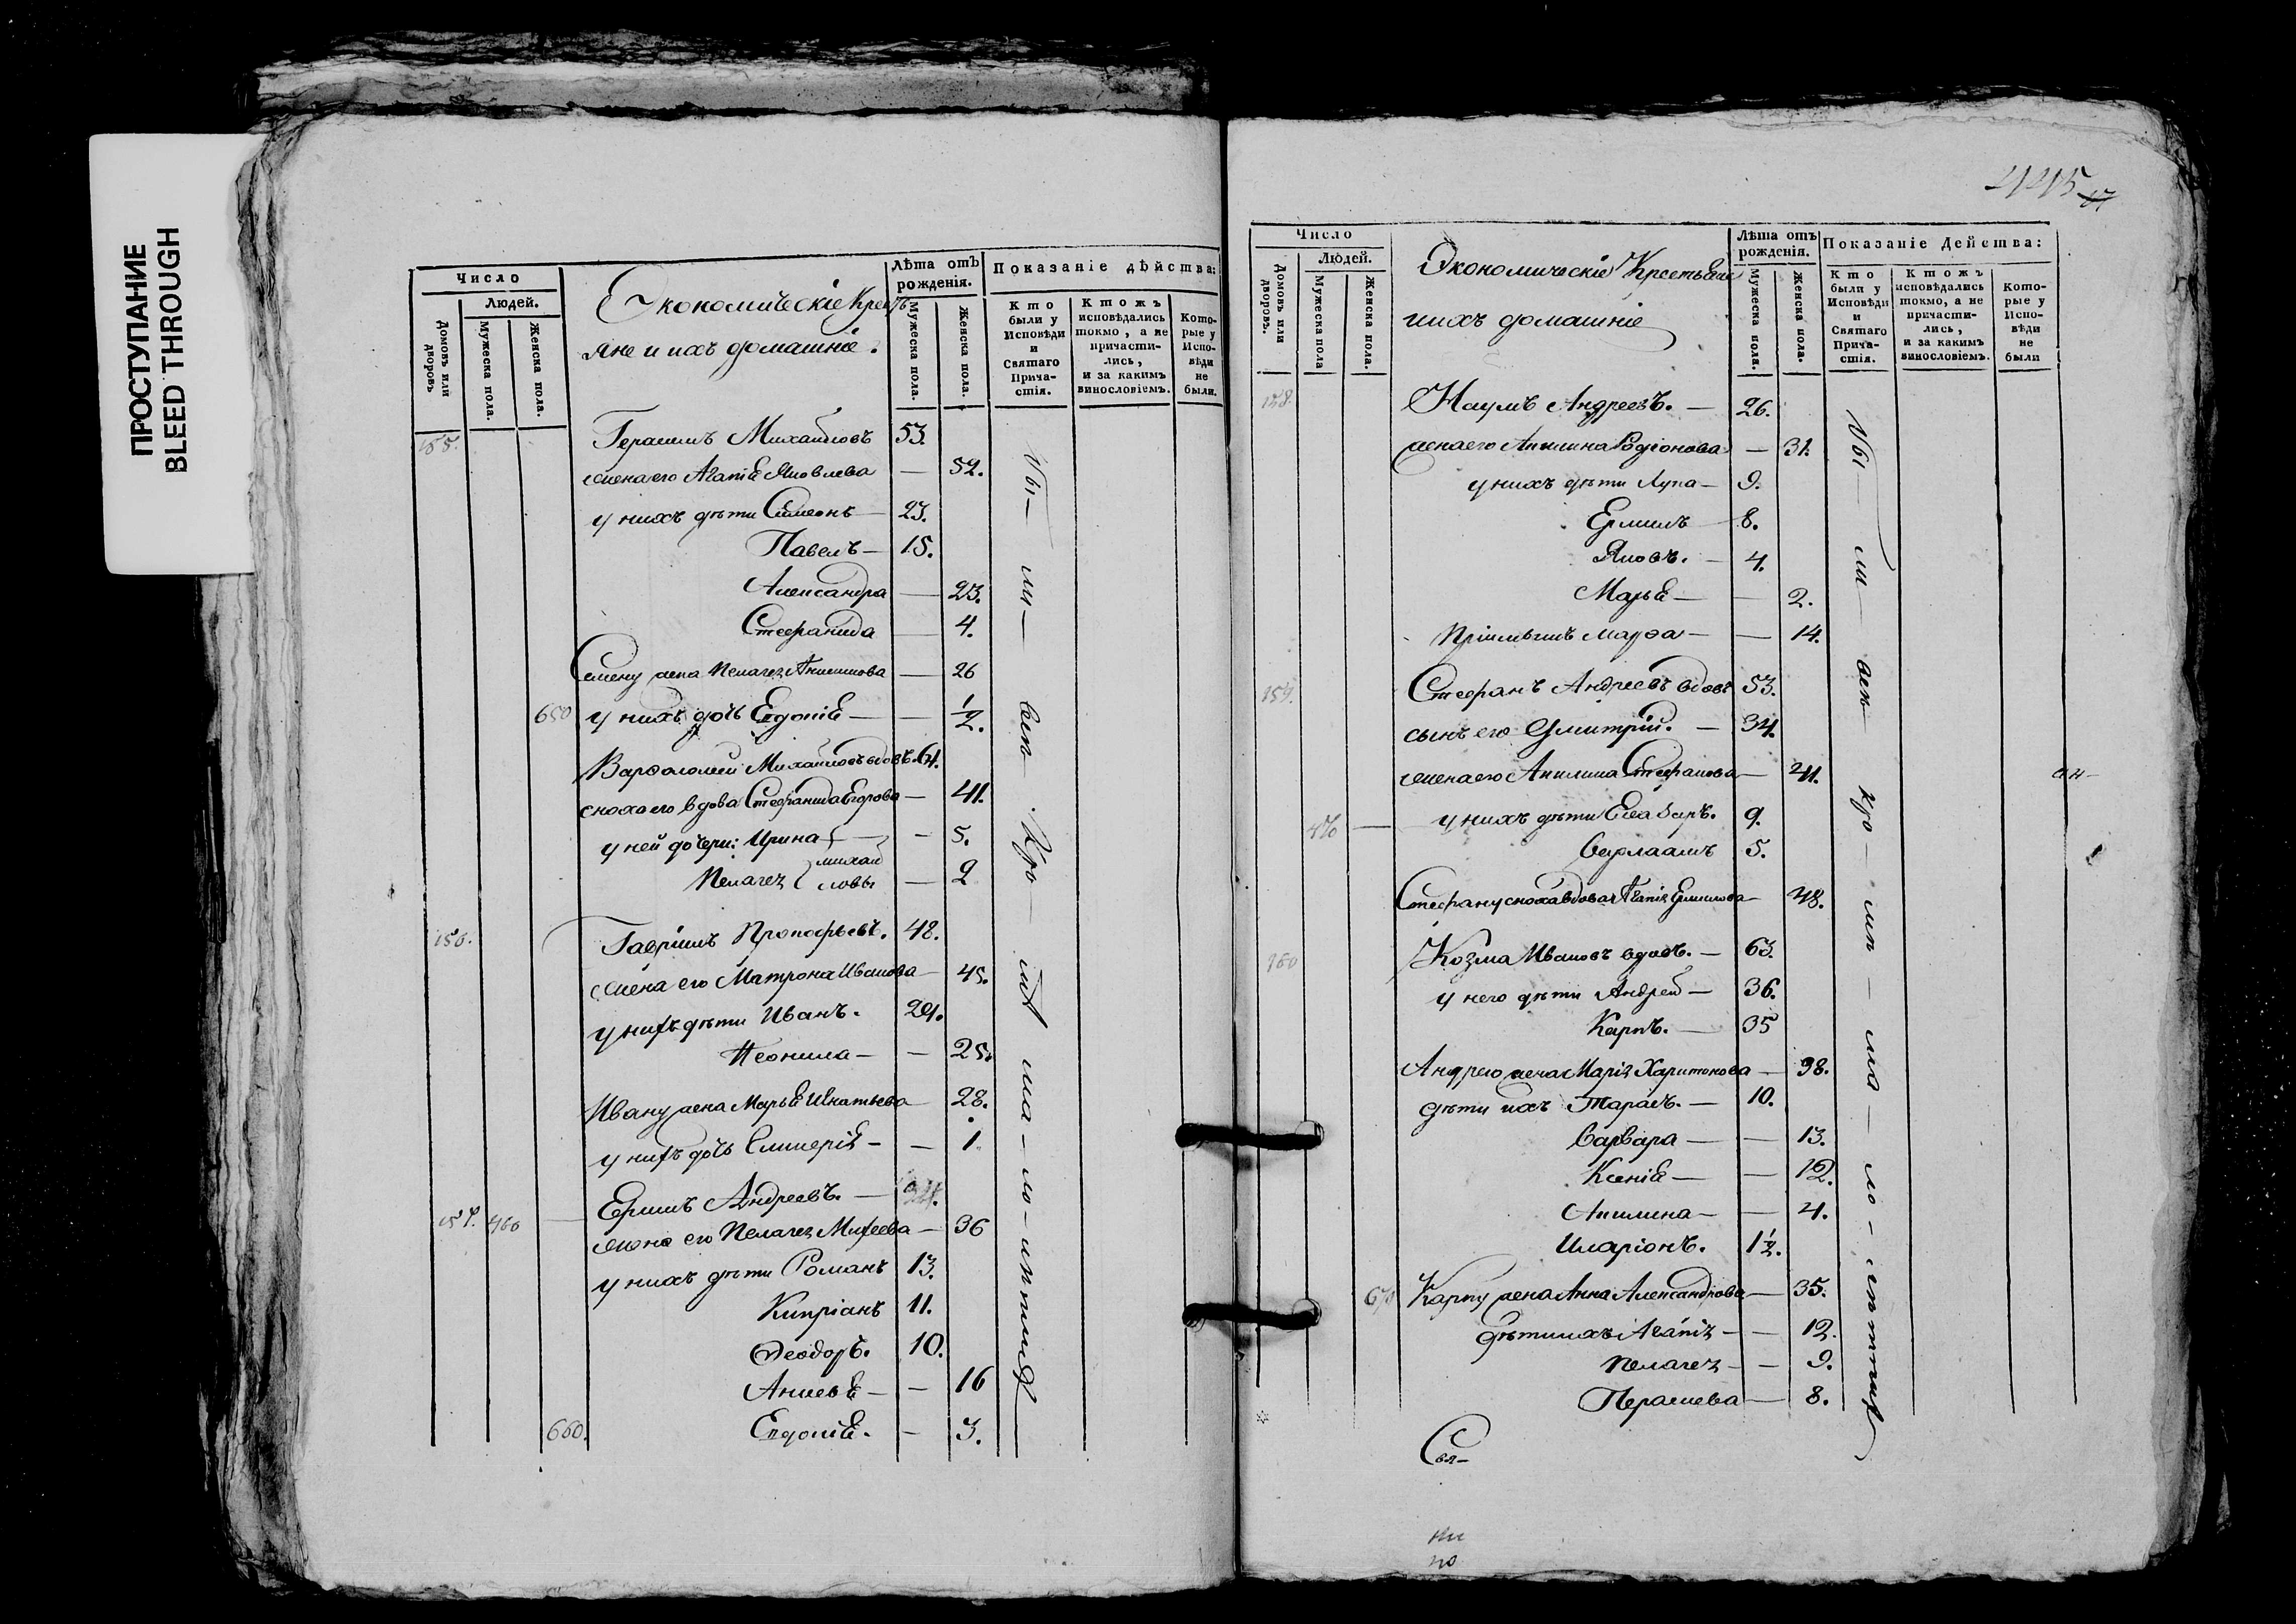 ПРОСТУПАНИЕ
BLEED THROUGH
Число
Людей.
Домовъ или дворовъ
Мужеска пола.
Женска пола.
Экономическіе Кресть
яне и ихъ домашніе.
Лѣта отъ рожденія.
Мужеска пола.
Женска пола.
Показаніе дѣйства:
Кто были у Исповѣди и Святаго Причастія.
Ктожъ исповѣдались токмо, а не причастились, и за какимъ винословіемъ.
Которые у Исповѣди не были.
155. Герасимъ Михайловъ 53.
жена его Агапія Яковлева — 52.
у нихъ дѣти Симеонъ — 23.
Павелъ — 15.
Александра — 23.
Стефанида — 4.
Семену жена Пелагея Анисимова — 26
650 у нихъ дочь Евдокія — — 1/2.
Варѳоломей Михайловъ вдовъ. 64.
сноха его вдова Стефанида Егорова — 41.
у ней дочери: Ирина — - 5.
Пелагея Михайловы — 2
156. Гавріилъ Прокофьевъ. 48.
жена его Матрона Иванова — 45.
у нихъ дѣти Иванъ. 29.
Неонила — — 25.
Ивану жена Марья Игнатьева 28.
у нихъ дочь Гликерія — — 1.
157. 460 Ермилъ Андреевъ. —
жена его Пелагея Михеева — 36
у нихъ дѣти Романъ 13.
Кипріанъ 11.
Ѳеодоръ. 10.
— — 16
660. Евдокія. — 3.
Число
Людей.
Домовъ или дворовъ.
Мужеска пола
Женска пола.
Экономическіе Крестьяне
и ихъ домашніе
Лѣта отъ рожденія.
Мужеска пола.
Женска пола.
Показаніе Действа:
Кто были у Исповѣди и Святаго Причастія.
Ктожъ исповѣдались токмо, а не причастились, и за какимъ винословіемъ.
Которые у Исповѣди не были
158. Наумъ Андреевъ. — 26.
жена его Акилина Родіонова — 31.
у нихъ дѣти Лупа — 9.
Ермилъ 8.
Яковъ. — 4.
Марья — — 2.
Пріимышъ Марѳа — — 14.
159. Стефанъ Андреевъ вдовъ 53.
сынъ его Дмитрій. — 34.
жена его Акилина Стефанова — 41.
470 — у нихъ дѣти Елеазаръ. 9.
Варлаамъ 5.
Стефану сноха вдова Агапія Ермилова 48.
160 Козма Ивановъ вдовъ. — 63.
у него дѣти Андрей — 36.
Карпъ. — 35
Андрею жена Марія Харитонова — 38.
дѣти ихъ Тарасъ. — 10.
Варвара — — 13.
Ксенія — — 12.
Акилина — — 4.
Иларіонъ. 1 1/2.
670 Карпу жена Анна Александрова — 35.
дѣти ихъ Агапія — — 12.
Пелагея — — 9.
Параскева — 8.
Свя-